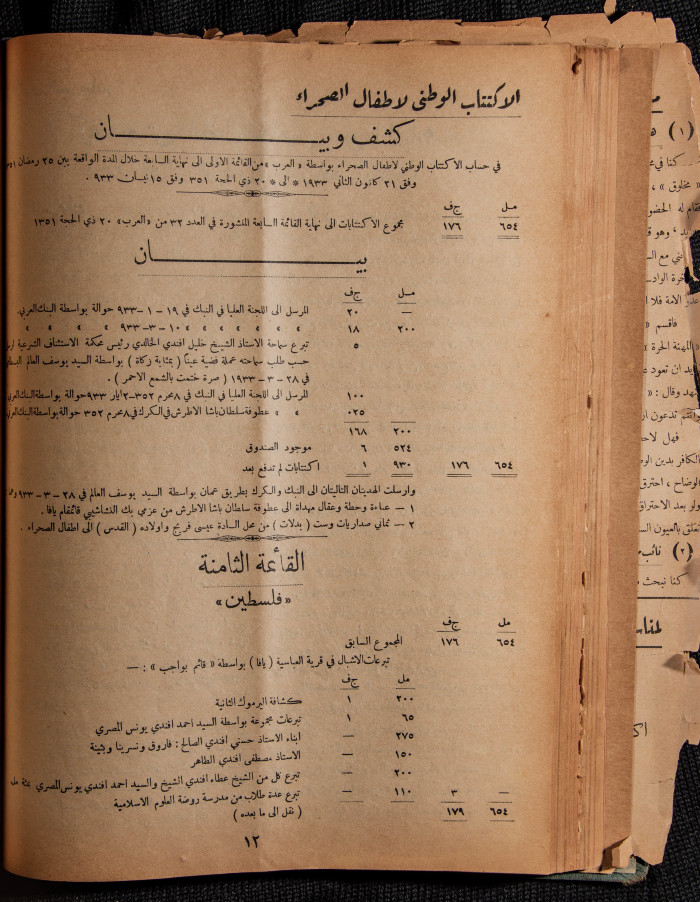 الاكتتاب الوطنى لاطفال الصحراء
كشف وبيـــــان
في حساب الاكتتاب الوطني لاطفال الصحراء بواسطة « العرب » من القائمة الاولى الى نهاية السابعة خلال المدة الواقعة بين ٢٥ رمضان ٣٥١
وفق ٢١ كانون الثاني ١٩٣٣ * الى * ٢٠ ذي الحجة ٣٥١ وفق ١٥ نيسان ٩٣٣ .
مل ج ف
مجموع الاكتتابات الى نهاية القائمة السابعة المنشورة في العدد ٣٢ من «العرب» ٢٠ ذي الحجة ١٣٥١ ١٧٦ ٦٥٤
بيـــــان
مل ج ف
المرسل الى اللجنة العليا في النبك في ١٩ - ١ - ٩٣٣ حوالة بواسطة البنك العربي. ٢٠ —
« « « « « « « ١٠ - ٣ - ٩٣٣ « « « « ١٨ ٢٠٠
تبرع سماحة الاستاذ الشيخ خليل افندي الخالدي رئيس محكمة الاستئناف الشرعية ٥
حسب طلب سماحته عملة فضية عيناً ( بمثابة زكاة ) بواسطة السيد يوسف العالم
في ٢٨ - ٣ - ١٩٣٣ ( صرة ختمت بالشمع الاحمر ) .
المرسل الى اللجنة العليا في النبك في ٨ محرم ٣٥٢-٢ ايار ٩٣٣ حوالة بواسطة البنك العربي ١٠٠
« « عطوفة سلطان باشا الاطرش في الكرك في ٨ محرم ٣٥٢ حوالة بواسطة البنك العربي ٠٢٥
١٦٨ ٢٠٠
موجود الصندوق ٦ ٥٢٤
اكتتابات لم تدفع بعد ١ ٩٣٠ ١٧٦ ٦٥٤
وارسلت الهديتان التاليتان الى النبك والكرك بطريق عمان بواسطة السيد يوسف العالم في ٢٨ - ٣ - ٩٣٣
١ — عباءة وحطة وعقال مهداة الى عطوفة سلطان باشا الاطرش من عزمي بك النشاشيبي قائمقام يافا .
٢ — ثماني صداريات وست ( بدلات ) من محل السادة عيسى فريج واولاده ( القدس ) الى اطفال الصحراء .
القائمة الثامنة
« فلسطين »
مل ج ف
المجموع السابق ١٧٦ ٦٥٤
تبرعات الاشبال في قرية العباسية ( يافا ) بواسطة « قائم بواجب » : —
مل ج ف
كشافة اليرموك الثانية ١ ٢٠٠
تبرعات مجموعة بواسطة السيد احمد افندي يونس المصري ١ ٦٥
ابناء الاستاذ حسني افندي الصالح : فاروق ونسرينا وبثينة — ٢٧٥
الاستاذ مصطفى افندي الطاهر — ١٥٠
تبرع كل من الشيخ عطاء افندي الشيخ والسيد احمد افندي يونس المصري بمئة مل — ٢٠٠
تبرع عدة طلاب من مدرسة روضة العلوم الاسلامية — ١١٠ ٣ —
( نقل الى ما بعده ) ١٧٩ ٦٥٤
١٢